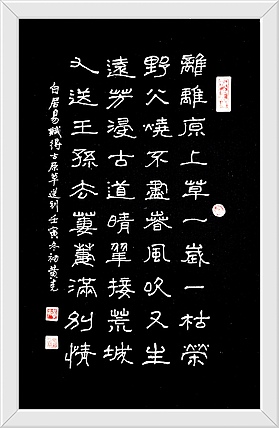 離離原上草一歲一枯榮
野火燒不盡春風吹又生
遠芳侵古道晴翠接荒城
又送王孫去萋萋滿別情
白居易賦得古原草送別壬寅冬初黄克